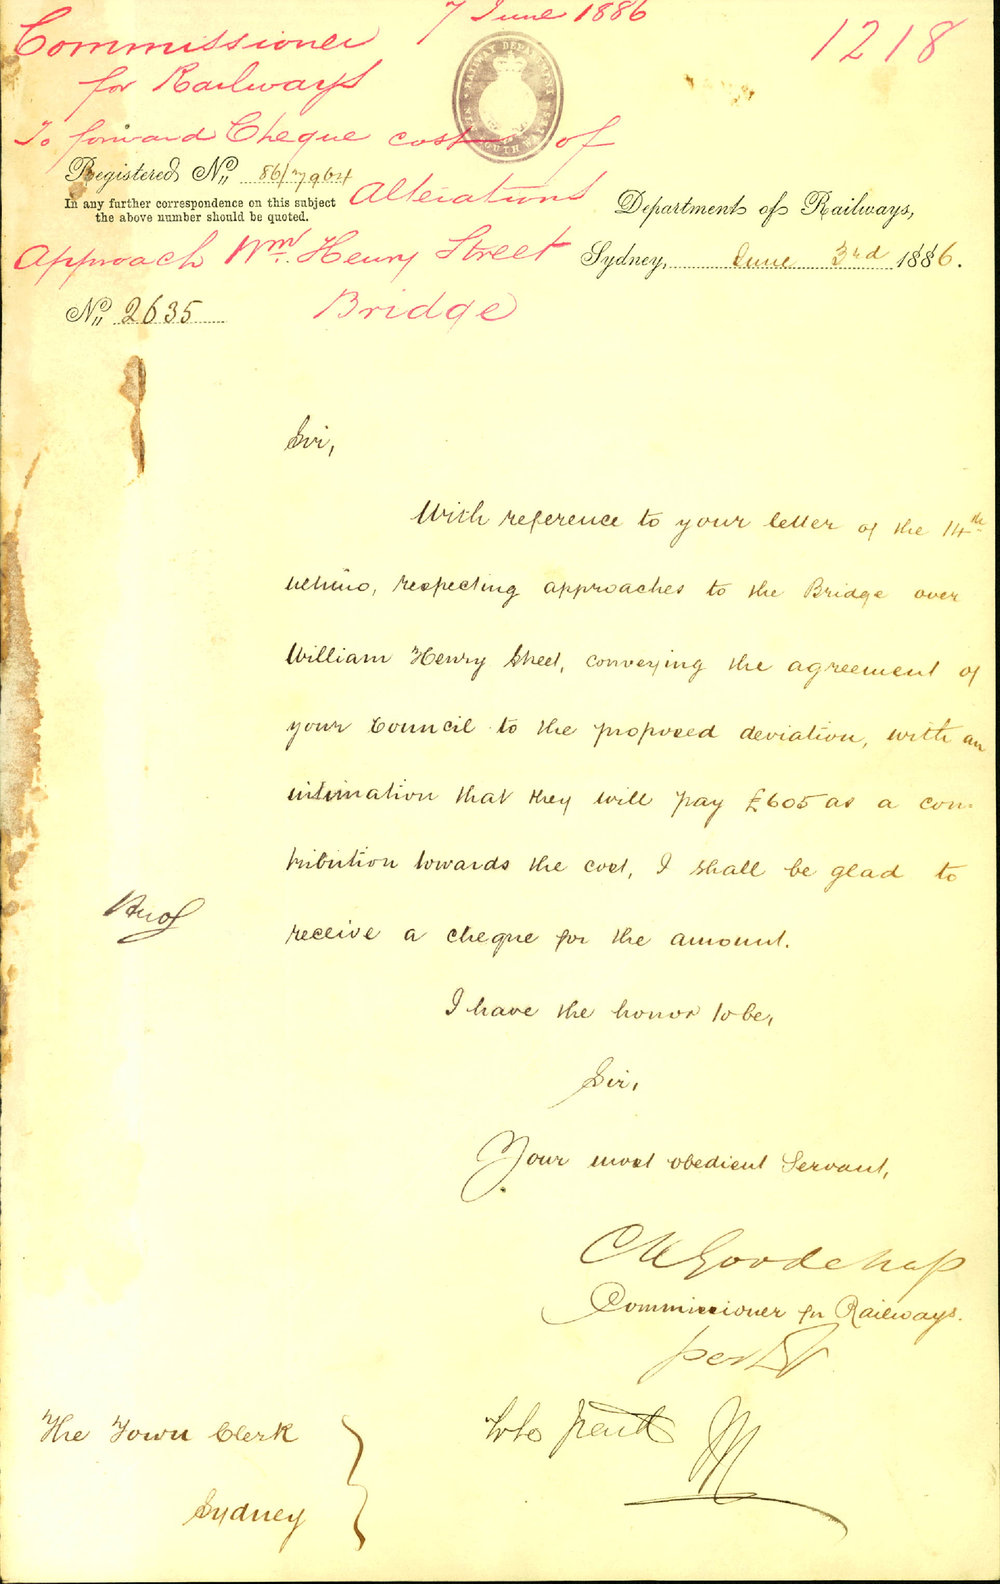 7 June 1886
1218
Commissioner
for Railways
To forward Cheque cost of
Alterations
Approach Wm. Henry Street
Bridge
RAILWAY DEPARTMENT
NEW SOUTH WALES
Registered No. 86/7964
In any further correspondence on this subject
the above number should be quoted.
Department of Railways,
Sydney, June 3rd 1886.
No. 2635
Sir,
With reference to your letter of the 14th
ultimo, respecting approaches to the Bridge over
William Henry Street, conveying the agreement of
your Council to the proposed deviation, with an
intimation that they will pay £605 as a con-
tribution towards the cost, I shall be glad to
receive a cheque for the amount.
I have the honor to be,
Sir,
Your most obedient Servant,
Ch Goodchap
Commissioner for Railways.
per
The Town Clerk
Sydney